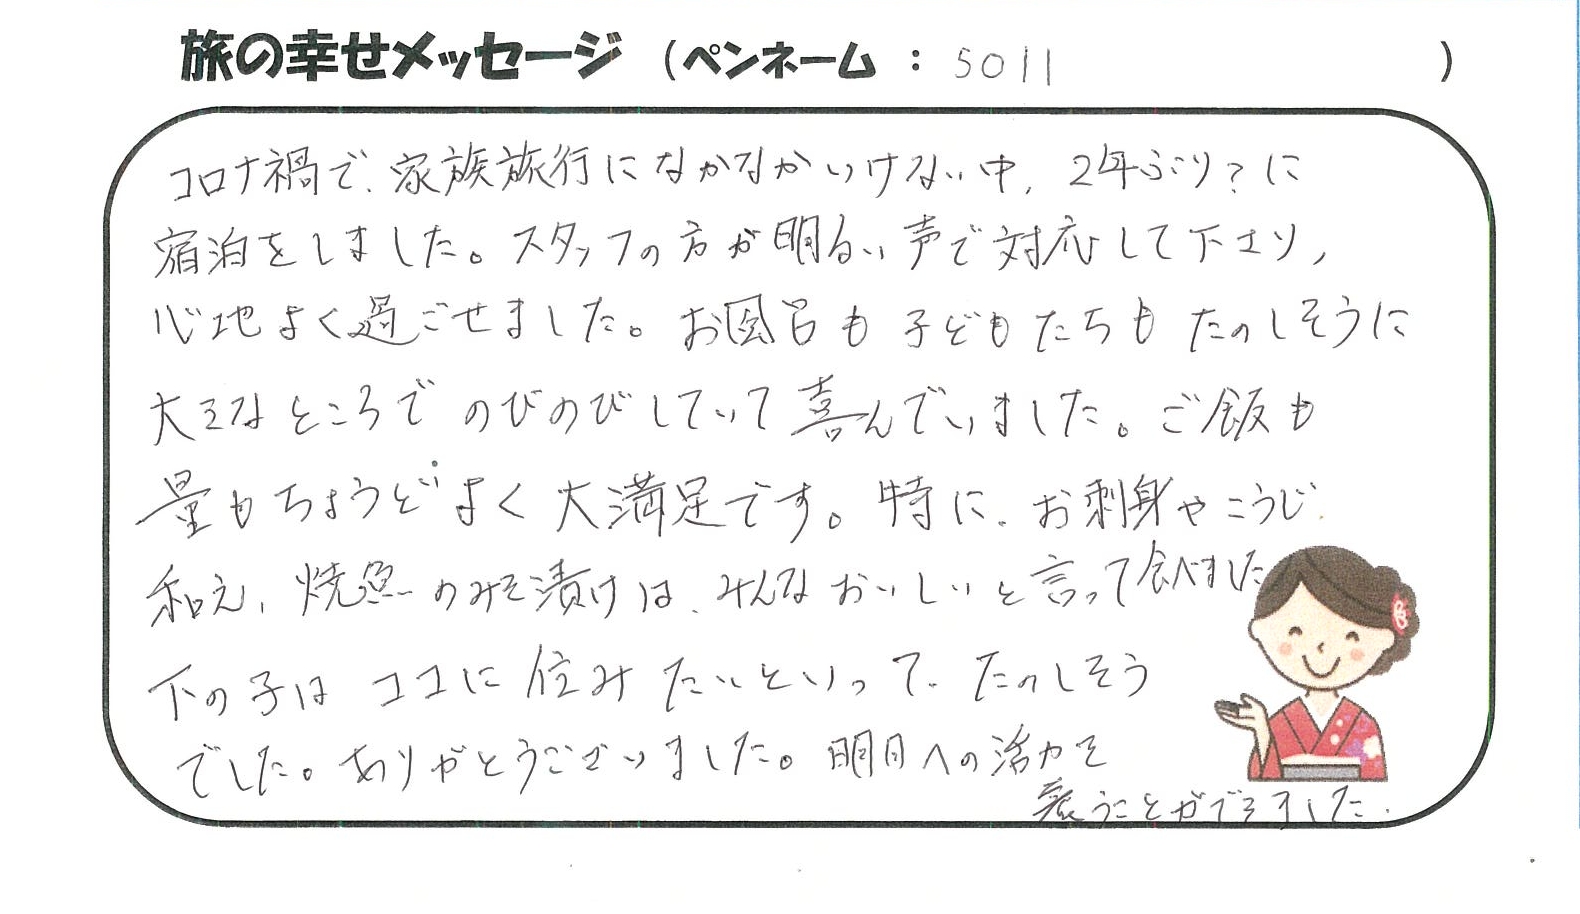 旅の幸せメッセージ （ペンネーム : 5011 ）
コロナ禍で、家族旅行になかなかいけない中、2年ぶり?に
宿泊をしました。スタッフの方が明るい声で対応して下さり、
心地よく過ごせました。お風呂も子どもたちもたのしそうに
大きなところでのびのびしていて喜んでいました。ご飯も
量もちょうどよく大満足です。特に、お刺身やこうじ
和え、焼魚のみそ漬けは、みんなおいしいと言って食べました
下の子はココに住みたいといって、たのしそう
でした。ありがとうございました。明日への活力を
養うことができました.